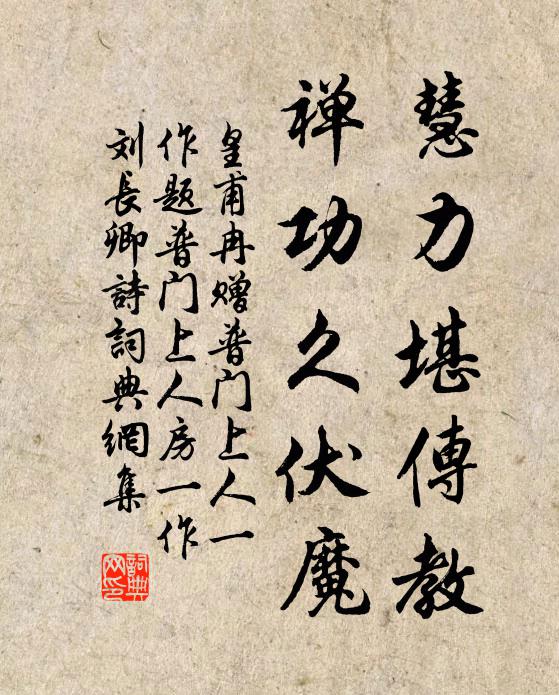 慧力堪傳教
禅功久伏魔
皇甫冉赠普门上人一
作题普门上人房一作
刘長卿詩詞典網集
詞典
网印